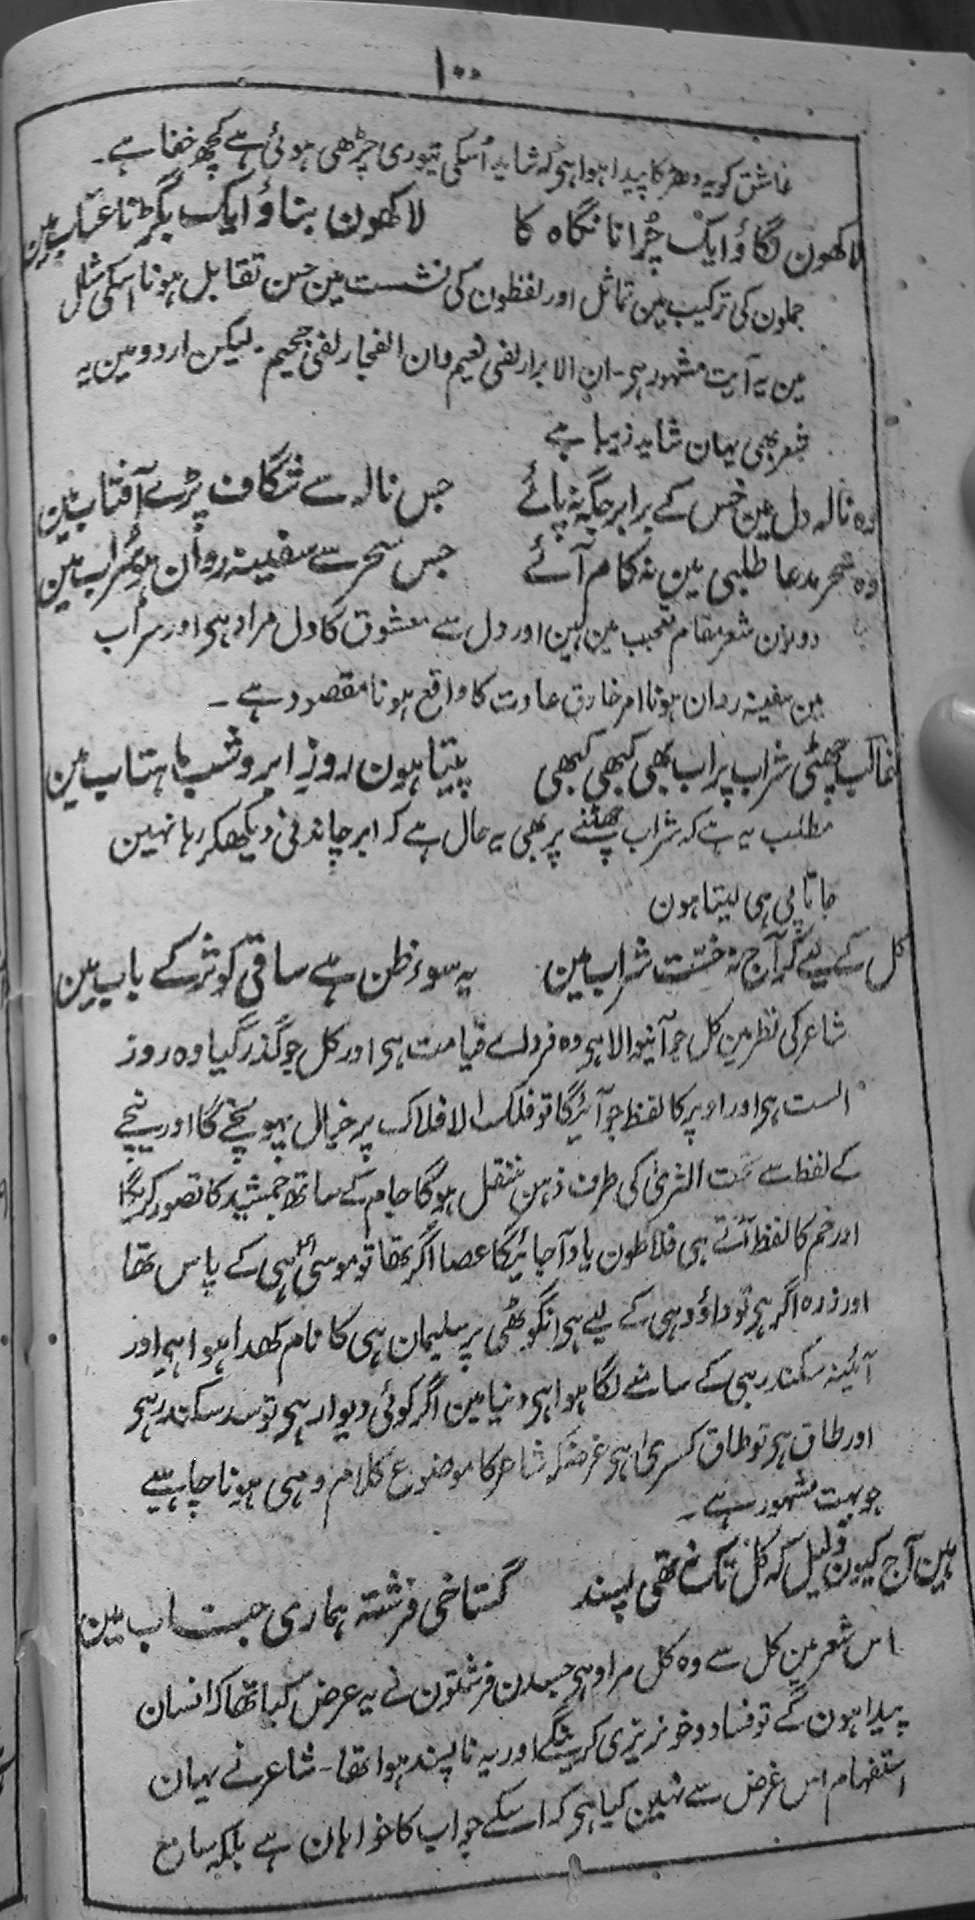 ۱۰۰
عاشق کو یہ دھڑکا پیدا ہوا ہی کہ شاید اُسکی تیوری چڑھی ہوئی ہے کچھ خفا ہے۔
لاکھون لگاؤ ایک چُرانا نگاہ کا لاکھون بناؤ ایک بگڑنا عتاب مین
جملون کی ترکیب مین تماثل اور لفظون کی نشست مین حسن تقابل ہونا اسکی مثال
مین یہ آیت مشہور ہی۔ ان الابرار لفی نعیم وان الفجار لفی جحیم۔ لیکن اردو مین یہ
شعر بھی یہان شاید زیبا ہے
وہ نالہ دل مین خس کے برابر جگہ نہ پائے جس نالہ سے شگاف پڑے آفتاب مین
وہ سحر مدعا طلبی مین نہ کام آئے جس سحر سے سفینہ روان ہو سراب مین
دونون شعر مقام تعجب مین ہین اور دل سے معشوق کا دل مراد ہی اور سراب
مین سفینہ روان ہونا امر خارق عادت کا واقع ہونا مقصود ہے۔
غالب چھٹی شراب پر اب بھی کبھی کبھی پیتا ہون روزِ ابر و شب ماہتاب مین
مطلب یہ ہے کہ شراب چھٹنے پر بھی یہ حال ہے کہ ابر چاندنی دیکھکر رہا نہین
جاتا پی ہی لیتا ہون
کل کے لیے کر آج نہ خسّت شراب مین یہ سوء ظن ہے ساقیِ کوثر کے باب مین
شاعر کی نظر مین کل جو آنیوالا ہی وہ فردا قیامت ہی اور کل جو گذر گیا وہ روز
الست ہی اور اوپر کا لفظ جو آئیگا تو فلک الافلاک پر خیال پہونچے گا اور نیچے
کے لفظ سے تحت الثریٰ کی طرف ذہن منتقل ہوگا جام کے ساتھ جمشید کا تصور کریگا
اور خم کا لفظ آتے ہی فلاطون یاد آجائیگا عصا اگر تھا تو موسیٰ ہی کے پاس تھا
اور زرہ اگر ہی تو داؤد ہی کے لیے ہی انگوٹھی پر سلیمان ہی کا نام کھدا ہوا ہی اور
آئینہ سکندر ہی کے سامنے لگا ہوا ہی دنیا مین اگر کوئی دیوار ہی تو سد سکندر ہی
اور طاق ہی تو طاق کسریٰ ہی غرضکہ شاعر کا موضوع کلام وہی ہونا چاہیے
جو بہت مشہور ہے۔
ہین آج کیون ذلیل کہ کل تک نہ تھی پسند گستاخی فرشتہ ہماری جناب مین
اس شعر مین کل سے وہ کل مراد ہی جسدن فرشتون نے یہ عرض کیا تھا کہ انسان
پیدا ہون گے تو فساد و خونریزی کرینگے اور یہ ناپسند ہوا تھا۔ شاعر نے یہان
استفہام اس غرض سے نہین کیا ہی کہ اسکے جواب کا خواہان ہے بلکہ سامع